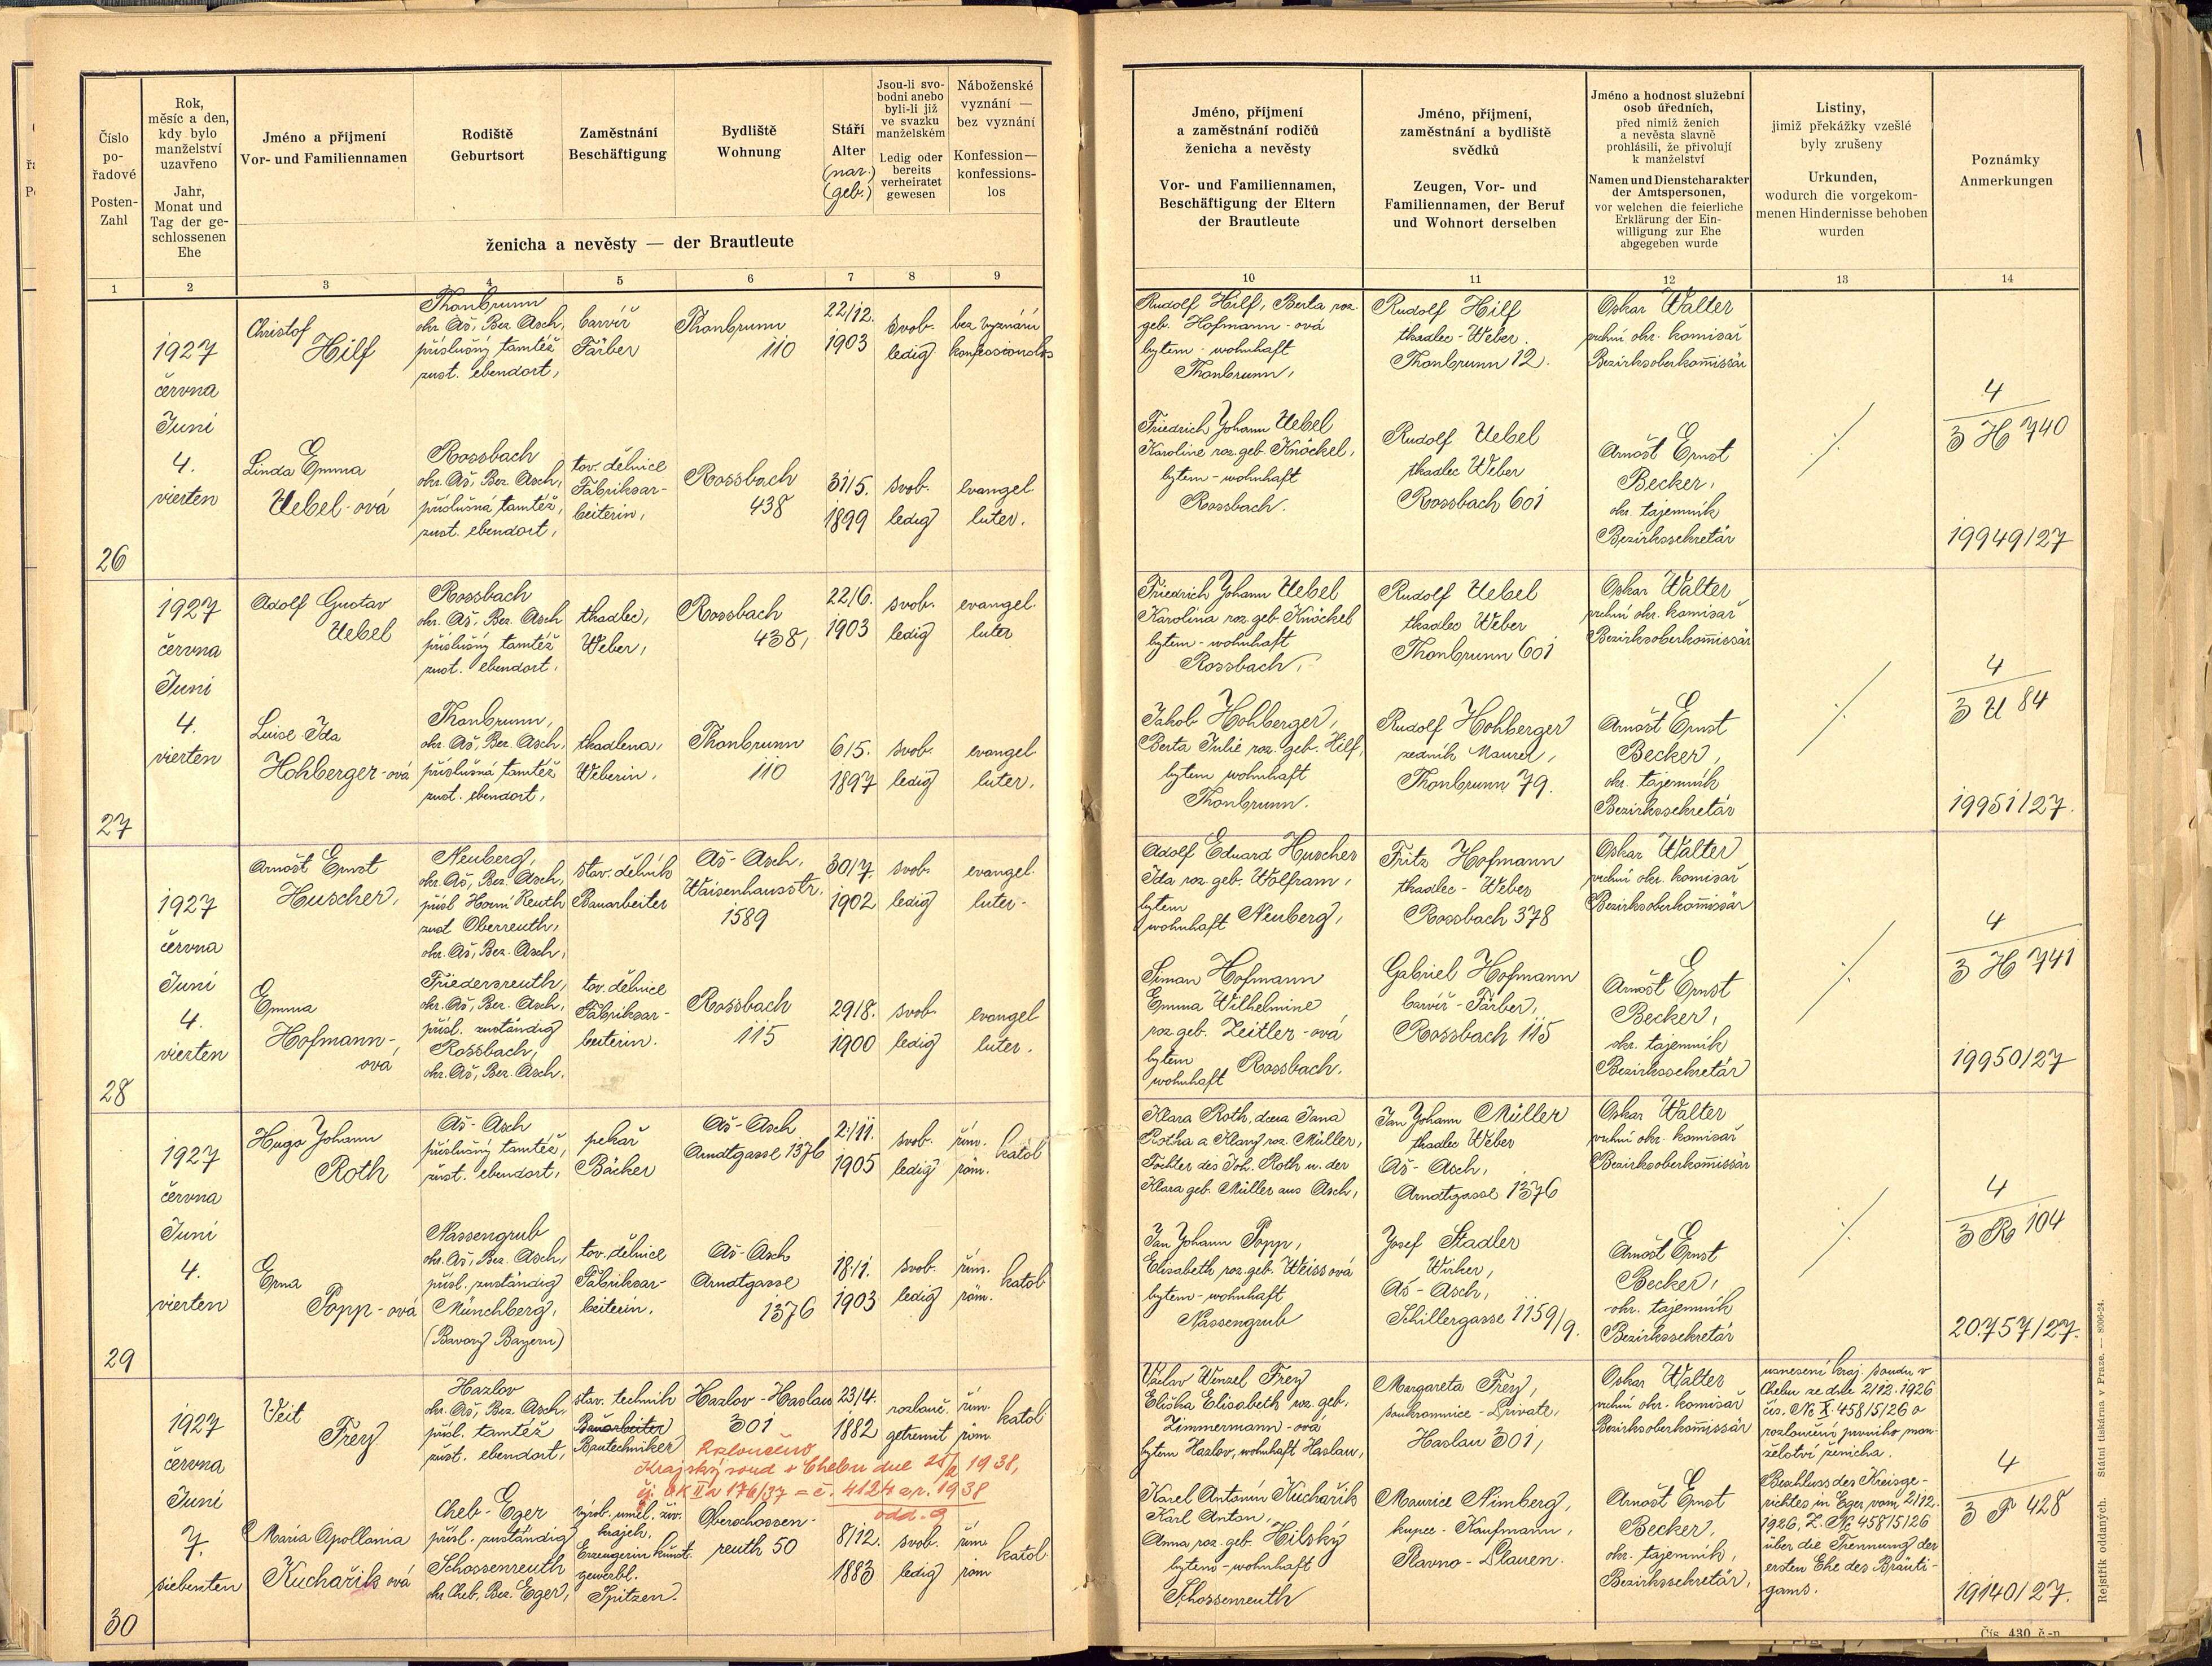 Číslo
po-
řadové
Posten-
Zahl
Rok,
měsíc a den,
kdy bylo
manželství
uzavřeno
Jahr,
Monat und
Tag der ge-
schlossenen
Ehe
Jméno a příjmení
Vor- und Familiennamen
Rodiště
Geburtsort
Zaměstnání
Beschäftigung
Bydliště
Wohnung
Stáří
Alter
(nar.)
(geb.)
Jsou-li svo-
bodni anebo
byli-li již
ve svazku
manželském
Ledig oder
bereits
verheiratet
gewesen
Náboženské
vyznání —
bez vyznání
Konfession—
konfessions-
los
ženicha a nevěsty — der Brautleute
1 2 3 4 5 6 7 8 9
Jméno, příjmení
a zaměstnání rodičů
ženicha a nevěsty
Vor- und Familiennamen,
Beschäftigung der Eltern
der Brautleute
Jméno, příjmení,
zaměstnání a bydliště
svědků
Zeugen, Vor- und
Familiennamen, der Beruf
und Wohnort derselben
Jméno a hodnost služební
osob úředních,
před nimiž ženich
a nevěsta slavně
prohlásili, že přivolují
k manželství
Namen und Dienstcharakter
der Amtspersonen,
vor welchen die feierliche
Erklärung der Ein-
willigung zur Ehe
abgegeben wurde
Listiny,
jimiž překážky vzešlé
byly zrušeny
Urkunden,
wodurch die vorgekom-
menen Hindernisse behoben
wurden
Poznámky
Anmerkungen
10 11 12 13 14
26
1927
června
Juni
4.
vierten
Christof
Hilf
Thonbrunn
okr. Aš, Bez. Asch,
příslušný tamtéž
zust. ebendort,
barvíř
Färber
Thonbrunn
110
22/12.
1903
svob.
ledig
bez vyznání
konfessionslos
Rudolf Hilf, Berta roz.
geb. Hofmann-ová
bytem - wohnhaft
Thonbrunn,
Rudolf Hilf
tkadlec - Weber.
Thonbrunn 12.
Oskar Walter
vrchní okr. komisař
Bezirksoberkommissär
Linda Emma
Uebel-ová
Rossbach
okr. Aš, Bez. Asch,
příslušná tamtéž,
zust. ebendort,
tov. dělnice
Fabriksar-
beiterin,
Rossbach
438
31/5.
1899
svob.
ledig
evangel.
luter.
Friedrich Johann Uebel
Karoline roz. geb. Knöckel,
bytem - wohnhaft
Rossbach.
Rudolf Uebel
tkadlec Weber
Rossbach 601
Arnošt Ernst
Becker,
okr. tajemník
Bezirkssekretär
4
3 H 740
19949/27
27
1927
června
Juni
4.
vierten
Adolf Gustav
Uebel
Rossbach
okr. Aš, Bez. Asch
příslušný tamtéž
zust. ebendort.
tkadlec,
Weber,
Rossbach
438,
22/6.
1903
svob.
ledig
evangel.
luter
Friedrich Johann Uebel
Karolina roz. geb. Knöckel
bytem - wohnhaft
Rossbach,
Rudolf Uebel
tkadlec Weber
Thonbrunn 601
Oskar Walter
vrchní okr. komisař
Bezirksoberkommissär
Luise Ida
Hohberger-ová
Thonbrunn,
okr. Aš, Bez. Asch,
příslušná tamtéž
zust. ebendort,
tkadlena,
Weberin.
Thonbrunn
110
6/5.
1897
svob.
ledig
evangel
luter.
Jakob Hohberger,
Berta Julie roz. geb. Hilf,
bytem wohnhaft
Thonbrunn.
Rudolf Hohberger
zedník Maurer,
Thonbrunn 79.
Arnošt Ernst
Becker,
okr. tajemník
Bezirkssekretär
4
3 U 84
19951/27.
28
1927
června
Juni
4.
vierten
Arnošt Ernst
Huscher,
Neuberg,
okr. Aš, Bez. Asch,
přísl Horní Reuth
zust Oberreuth,
okr. Aš, Bez. Asch,
stav. dělník
Bauarbeiter
Aš-Asch,
Waisenhausstr.
1589
30/7.
1902
svob.
ledig
evangel.
luter.
Adolf Eduard Huscher
Ida roz. geb. Wolfram,
bytem
wohnhaft Neuberg,
Fritz Hofmann
tkadlec - Weber
Rossbach 378
Oskar Walter
vrchní okr. komisař
Bezirksoberkommissär
Emma
Hofmann-
ová
Friedersreuth,
okr. Aš, Bez. Asch,
přísl. zuständig
Rossbach,
okr. Aš, Bez. Asch.
tov. dělnice
Fabriksar-
beiterin.
Rossbach
115
29/8.
1900
svob.
ledig
evangel
luter.
Simon Hofmann
Emma Wilhelmine
roz. geb. Zeitler-ová
bytem
wohnhaft Rossbach.
Gabriel Hofmann
barvíř - Färber,
Rossbach 115
Arnošt Ernst
Becker,
okr. tajemník
Bezirkssekretär
4
3 H 741
19950/27
29
1927
června
Juni
4.
vierten
Hugo Johann
Roth
Aš-Asch
příslušný tamtéž,
zust. ebendort,
pekař
Bäcker
Aš-Asch
Arndtgasse 1376
2/11.
1905
svob.
ledig
řím.
röm. katol
Klara Roth, dcera Jana
Rotha a Klary roz. Müller,
Tochter des Joh. Roth u. der
Klara geb. Müller aus Asch,
Jan Johann Müller
tkadlec Weber
Aš-Asch,
Arndtgasse 1376
Oskar Walter
vrchní okr. komisař
Bezirksoberkommissär
Erna
Popp-ová
Nassengrub
okr. Aš, Bez. Asch,
přísl. zuständig
Münchberg,
(Bavory Bayern)
tov. dělnice
Fabriksar-
beiterin.
Aš-Asch
Arndtgasse
1376
18/1.
1903
svob.
ledig
řím.
röm. katol
Jan Johann Popp,
Elisabeth roz. geb. Weissová
bytem - wohnhaft
Nassengrub
Josef Stadler
Wirker,
Aš-Asch,
Schillergasse 1159/9.
Arnošt Ernst
Becker,
okr. tajemník
Bezirkssekretär
4
3 R 104
20.757/27.
30
1927
června
Juni
7.
siebenten
Veit
Frey
Hazlov
okr. Aš, Bez. Asch.
přísl. tamtéž
zust. ebendort,
stav. technik
Bauarbeiter
Bautechniker
Hazlov-Haslau
301
23/4.
1882
rozlouč.
getrennt
řím.
röm katol
Rozloučeno
Krajský soud v Chebu dne 1938,
čj. Ck IIa 176/37 = č. 4124 a r. 1938
odd. 9
Václav Wenzel Frey
Eliška Elisabeth roz. geb.
Zimmermann-ová
bytem Hazlov, wohnhaft Haslau,
Margareta Frey,
soukromnice - Private,
Haslau 301,
Oskar Walter
vrchní okr. komisař
Bezirksoberkommissär
usnesení kraj. soudu v
Chebu ze dne 2/12. 1926
čís. Nc X. 458/5/26 o
rozloučení prvního man-
želství ženicha.
Maria Apollonia
Kuchařík ová
Cheb-Eger
přísl. zuständig
Schossenreuth
okr Cheb, Bez. Eger,
výrob. uměl. žív.
krajek.
Erzeugerin künst.
gewerbl.
Spitzen.
Oberschossen-
reuth 50
8/12.
1883
svob.
ledig
řím
röm katol
Karel Antonín Kuchařík
Karl Anton,
Anna roz. geb. Hilský
bytem - wohnhaft
Schossenreuth
Maurice Nimberg,
kupec - Kaufmann,
Plavno - Plauen.
Arnošt Ernst
Becker,
okr. tajemník,
Bezirkssekretär,
Beschluss des Kreisge-
richtes in Eger vom 2/12.
1926, Z. Nc 458/5/26
über die Trennung der
ersten Ehe des Bräuti-
gams.
4
3 F 428
19140/27.
Rejstřík oddaných. Státní tiskárna v Praze. — 8006-24.
Čís. 430 č.-n